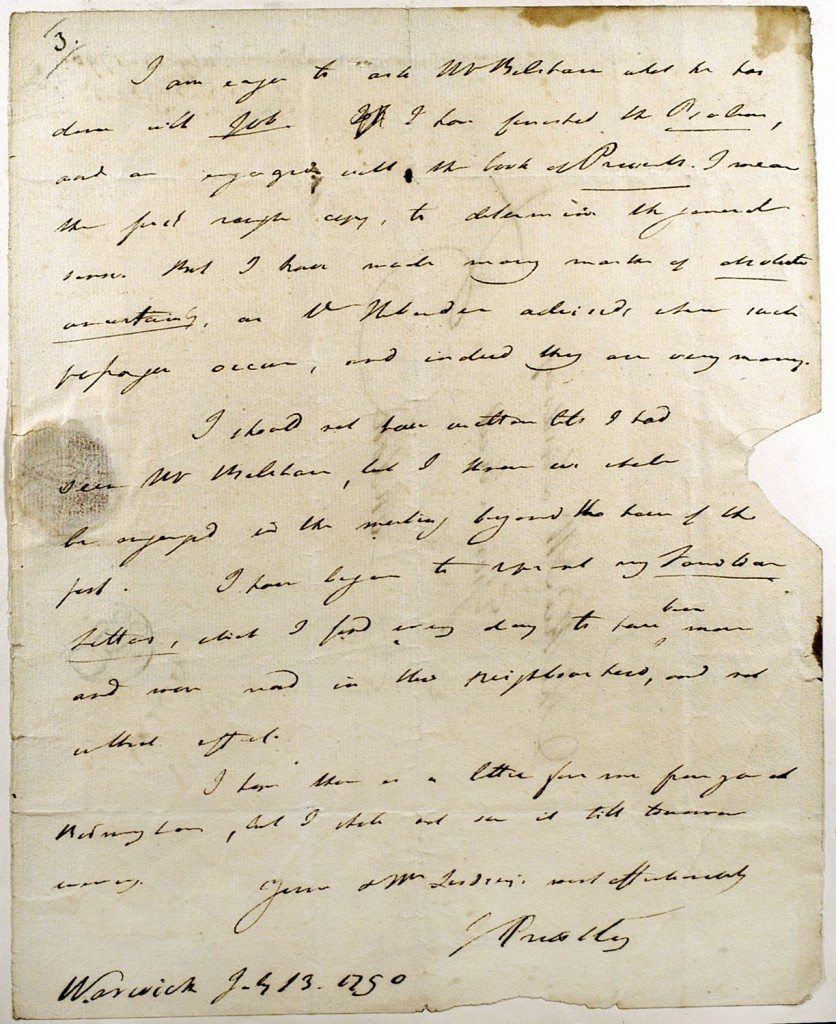 3.
I am eager to ask Mr Belsham what he has
done with Job. I have finished the Psalms,
and am engaged with the book of Proverbs. I mean
the first rough copy, to determine the general
sense. But I have made many marks of absolute
uncertainty, as Dr Heberden advised, when such
passages occur, and indeed they are very many.
I should not have written till I had
seen Mr Belsham, but I know we shall
be engaged in the meeting beyond the hour of the
post. I have begun to reprint my Familiar
Letters, which I find every day to have been more
and more read in this neighbourhood, and not
without effect.
I hope there is a letter for me from you at
Birmingham, but I shall not see it till tomorrow
evening. Yours & Mrs Lindsey's most affectionately
J Priestley
Warwick July 13. 1790